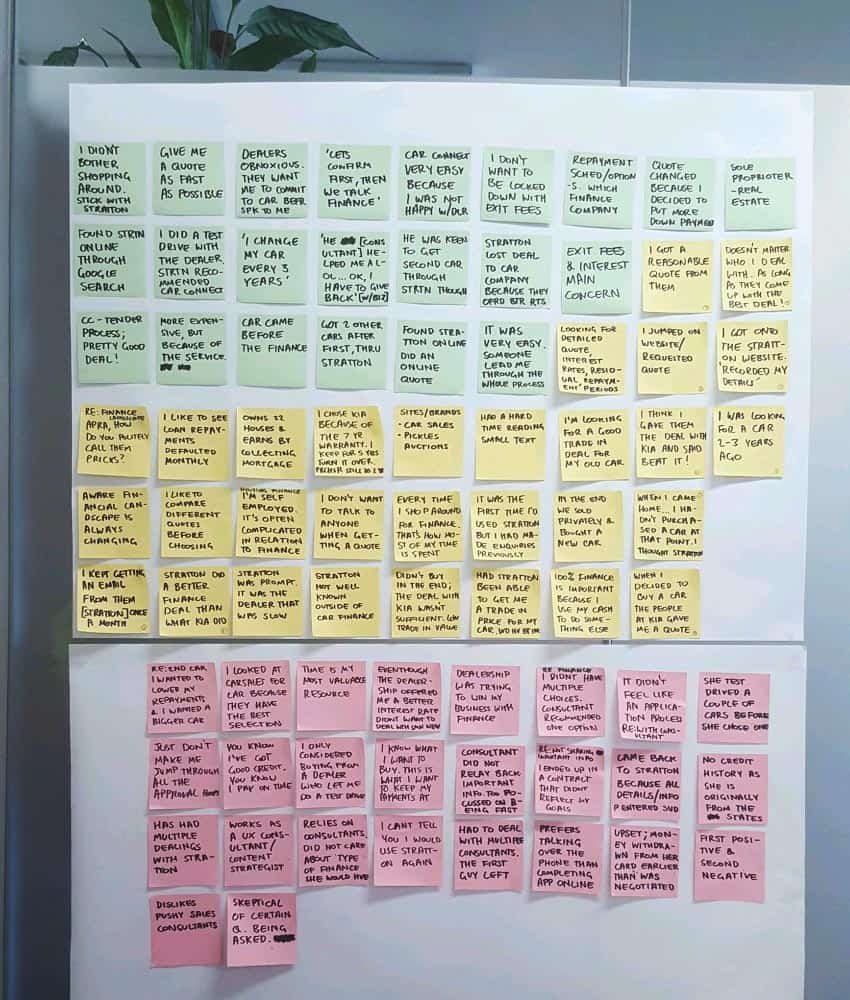 I DIDN'T
BOTHER
SHOPPING
AROUND.
STICK WITH
STRATTON
GIVE ME
A QUOTE
AS FAST
AS POSSIBLE
DEALERS
OBNOXIOUS.
THEY WANT
ME TO COMMIT
TO CAR BEFR
SPK TO ME
'LETS
CONFIRM
FIRST, THEN
WE TALK
FINANCE'
CAR CONNECT
VERY EASY
BECAUSE
I WAS NOT
HAPPY W/DLR
I DON'T
WANT TO
BE LOCKED
DOWN WITH
EXIT FEES
REPAYMENT
SCHED/OPTION
-S. WHICH
FINANCE
COMPANY
QUOTE
CHANGED
BECAUSE I
DECIDED TO
PUT MORE
DOWN PAYMEN
SOLE
PROPRIOTER
-REAL
ESTATE
FOUND STRTN
ONLINE
THROUGH
GOOGLE
SEARCH
I DID A TEST
DRIVE WITH
THE DEALER.
STRTN RECO-
MMENDED
CAR CONNECT
'I CHANGE
MY CAR
EVERY 3
YEARS'
'HE [CONS
ULTANT] HE-
LPED ME A L-
OT... OK, I
HAVE TO GIVE
BACK' [W/BIZ]
HE WAS KEEN
TO GET
SECOND CAR
THROUGH
STRTN THOUGH
STRATTON
LOST DEAL
TO CAR
COMPANY
BECAUSE THEY
OFRD BTR RTS
EXIT FEES
& INTEREST
MAIN
CONCERN
I GOT A
REASONABLE
QUOTE FROM
THEM
DOESN'T MATTER
WHO I DEAL
WITH. AS LONG
AS THEY COME
UP WITH THE
BEST DEAL!
CC-TENDER
PROCESS;
PRETTY GOOD
DEAL!
MORE EXPEN-
SIVE BUT
BECAUSE OF
THE SERVICE.
CAR CAME
BEFORE
THE FINANCE
GOT 2 OTHER
CARS AFTER
FIRST, THRU
STRATTON
FOUND STRA-
TTON ONLINE
DID AN
ONLINE
QUOTE
IT WAS
VERY EASY.
SOMEONE
LEAD ME
THROUGH THE
WHOLE PROCESS
LOOKING FOR
DETAILED
QUOTE,
INTEREST
RATES, RESID-
UAL, REPAYM-
ENT PERIODS
I JUMPED ON
WEBSITE/
REQUESTED
QUOTE
I GOT ONTO
THE STRATT-
ON WEBSITE.
'RECORDED MY
DETAILS'
RE: FINANCE
LANDSCAPE
APRA, HOW
DO YOU POLITELY
CALL THEM
PRICKS?
I LIKE TO SEE
LOAN REPAY-
MENTS
DEFAULTED
MONTHLY
OWNS 22
HOUSES &
EARNS BY
COLLECTING
MORTGAGE
I CHOSE KIA
BECAUSE OF
THE 7 YR
WARRANTY. I
KEEP FOR 5 YRS
TURN IT OVER.
SITES/BRANDS
- CAR SALES
- PICKLES
AUCTIONS
HAD A HARD
TIME READING
SMALL TEXT
I'M LOOKING
FOR A GOOD
TRADE IN
DEAL FOR
MY OLD CAR
I THINK I
GAVE THEM
THE DEAL WITH
KIA AND SAID
BEAT IT!
I WAS LOOKING
FOR A CAR
2-3 YEARS
AGO
AWARE FIN-
ANCIAL LAN-
DSCAPE IS
ALWAYS
CHANGING
I LIKE TO
COMPARE
DIFFERENT
QUOTES
BEFORE
CHOOSING
I'M SELF
EMPLOYED.
IT'S OFTEN
COMPLICATED
IN RELATION
TO FINANCE
I DON'T WANT
TO TALK TO
ANYONE
WHEN GET-
TING A QUOTE
EVERY TIME
I SHOP AROUND
FOR FINANCE.
THAT'S HOW MO-
ST OF MY TIME
IS SPENT
IT WAS THE
FIRST TIME I'D
USED STRATTON
BUT I HAD MA-
DE ENQUIRIES
PREVIOUSLY
IN THE END
WE SOLD
PRIVATELY &
BOUGHT A
NEW CAR
WHEN I CAME
HOME... I HA-
DN'T PURCHA-
SED A CAR AT
THAT POINT. I
THOUGHT STRATTON
I KEPT GETTING
AN EMAIL
FROM THEM
[STRATTON] ONCE
A MONTH
STRATTON DID
A BETTER
FINANCE
DEAL THAN
WHAT KIA DID
STRATTON
WAS PROMPT.
IT WAS THE
DEALER THAT
WAS SLOW
STRATTON
NOT WELL
KNOWN
OUTSIDE OF
CAR FINANCE
DIDN'T BUY
IN THE END;
THE DEAL WITH
KIA WASN'T
SUFFICIENT. LOW
TRADE IN VALUE
HAD STRATTON
BEEN ABLE
TO GET ME
A TRADE IN
PRICE FOR MY
CAR,
100% FINANCE
IS IMPORTANT
BECAUSE I
USE MY CASH
TO DO SOME-
THING ELSE
WHEN I
DECIDED TO
BUY A CAR
THE PEOPLE
AT KIA GAVE
ME A QUOTE.
RE: 2ND CAR
I WANTED TO
LOWER MY
REPAYMENTS
& I WANTED A
BIGGER CAR
I LOOKED AT
CARSALES FOR
CAR BECAUSE
THEY HAVE
THE BEST
SELECTION
TIME IS MY
MOST VALUABLE
RESOURCE
EVENTHOUGH
THE DEALER-
SHIP OFFERED
ME A BETTER
INTEREST RATE
DIDNT WANT TO
DEAL WITH
DEALERSHIP
WAS TRYING
TO WIN MY
BUSINESS WITH
FINANCE
RE: FINANCE
I DIDNT HAVE
MULTIPLE
CHOICES.
CONSULTANT
RECOMMENDED
ONE OPTION
IT DIDN'T
FEEL LIKE
AN APPLICA-
TION PROCESS
RE: WITH CONS-
ULTANT
SHE TEST
DRIVED A
COUPLE OF
CARS BEFORE
SHE CHOSE ONE
JUST DON'T
MAKE ME
JUMP THROUGH
ALL THE
APPROVAL HOOPS
YOU KNOW
I'VE GOT
GOOD CREDIT.
YOU KNOW
I PAY ON TIME
I ONLY
CONSIDERED
BUYING FROM
A DEALER
WHO LET ME
DO A TEST DRIVE
I KNOW WHAT
I WANT TO
BUY. THIS IS
WHAT I WANT
TO KEEP MY
PAYMENTS AT
CONSULTANT
DID NOT
RELAY BACK
IMPORTANT
INFO. TOO FO-
CUSSED ON B-
EING FAST
RE: NOT SHARING
IMPORTANT INFO
I ENDED UP IN
A CONTRACT
THAT DIDNT
REFLECT MY
GOALS
CAME BACK
TO STRATTON
BECAUSE ALL
DETAILS/INFO
ENTERED SVD
NO CREDIT
HISTORY AS
SHE IS
ORIGINALLY
FROM THE
STATES
HAS HAD
MULTIPLE
DEALINGS
WITH STRA-
TTON
WORKS AS
A UX CONS-
ULTANT/
CONTENT
STRATEGIST
RELIES ON
CONSULTANTS.
DID NOT CARE
ABOUT TYPE
OF FINANCE
SHE WOULD HAVE
I CANT TELL
YOU I WOULD
USE STRATT-
ON AGAIN
HAD TO DEAL
WITH MULTIPLE
CONSULTANTS.
THE FIRST
GUY LEFT
PREFERS
TALKING
OVER THE
PHONE THAN
COMPLETING
APP ONLINE
UPSET; MON-
EY WITHDRA-
WN FROM HER
CARD EARLIER
THAN WAS
NEGOTIATED
FIRST POSI-
TIVE &
SECOND
NEGATIVE
DISLIKES
PUSHY SALES
CONSULTANTS
SKEPTICAL
OF CERTAIN
Q. BEING
ASKED.